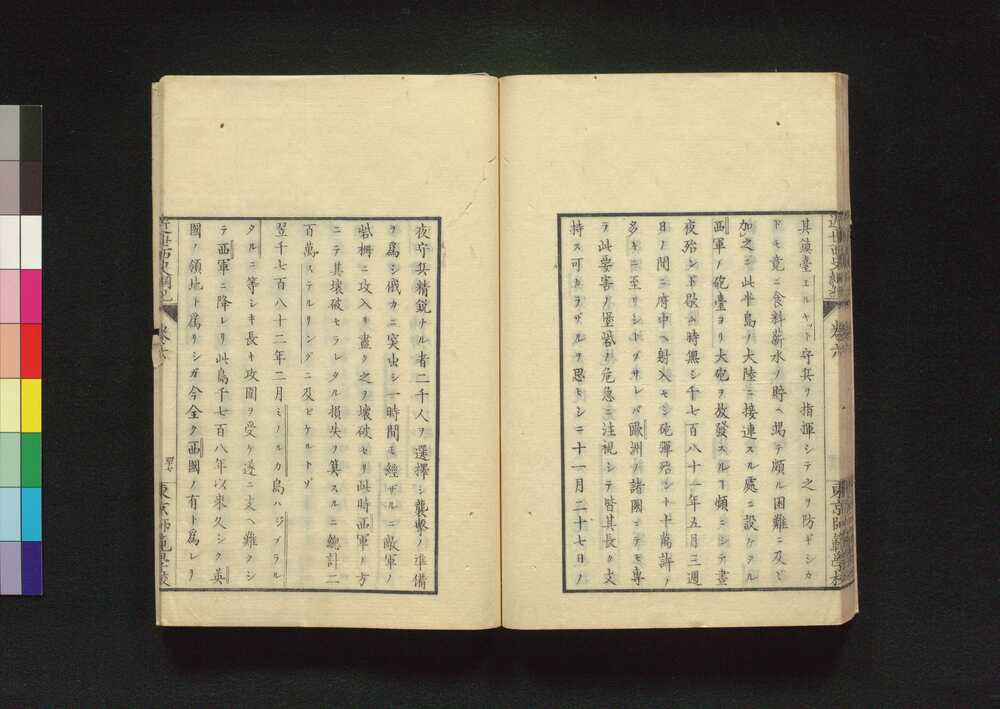 近世西史綱紀 卷六 東京師範學校
其鎮臺エルヤット守兵ヲ指揮シテ之ヲ防ギシカ
ドモ竟ニ食料薪水ノ貯ヘ竭テ頗ル困難ニ及ビ
加之ニ此半島ノ大陸ニ接連スル處ニ設ケラル
西軍ノ砲臺ヨリ大砲ヲ放發スルヿ頻ニシテ晝
夜殆ンド歇ム時無シ千七百八十一年五月三週
日ノ間ニ府中ヘ射入セシ砲彈殆ンド十萬許ノ
多キニ至リシトゾサレバ歐洲ノ諸國ニテモ專
ラ此要害ノ堡砦ノ危急ニ注視シテ皆其長ク支
持ス可カラザルヲ思ヒシニ十一月二十七日ノ
夜守兵精鋭ナル者二千人ヲ選擇シ襲擊ノ準備
ヲ爲シ俄カニ突出シ一時間モ經ザルニ敵軍ノ
砦柵ニ攻入リ盡ク之ヲ壞破セリ此時西軍ノ方
ニテ其壞破セラレタル損失ヲ算スルニ總計二
百萬ステルリングニ及ビケルトゾ
翌千七百八十二年二月ミノルカ島ハジブラル
タルニ等シキ長キ攻圍ヲ受ケ遂ニ支ヘ難クシ
テ西軍ニ降レリ此島千七百八年以來久シク英
國ノ領地ト爲リシガ今全ク西國ノ有ト爲レリ
近世西史綱紀 卷六 東京師範學校